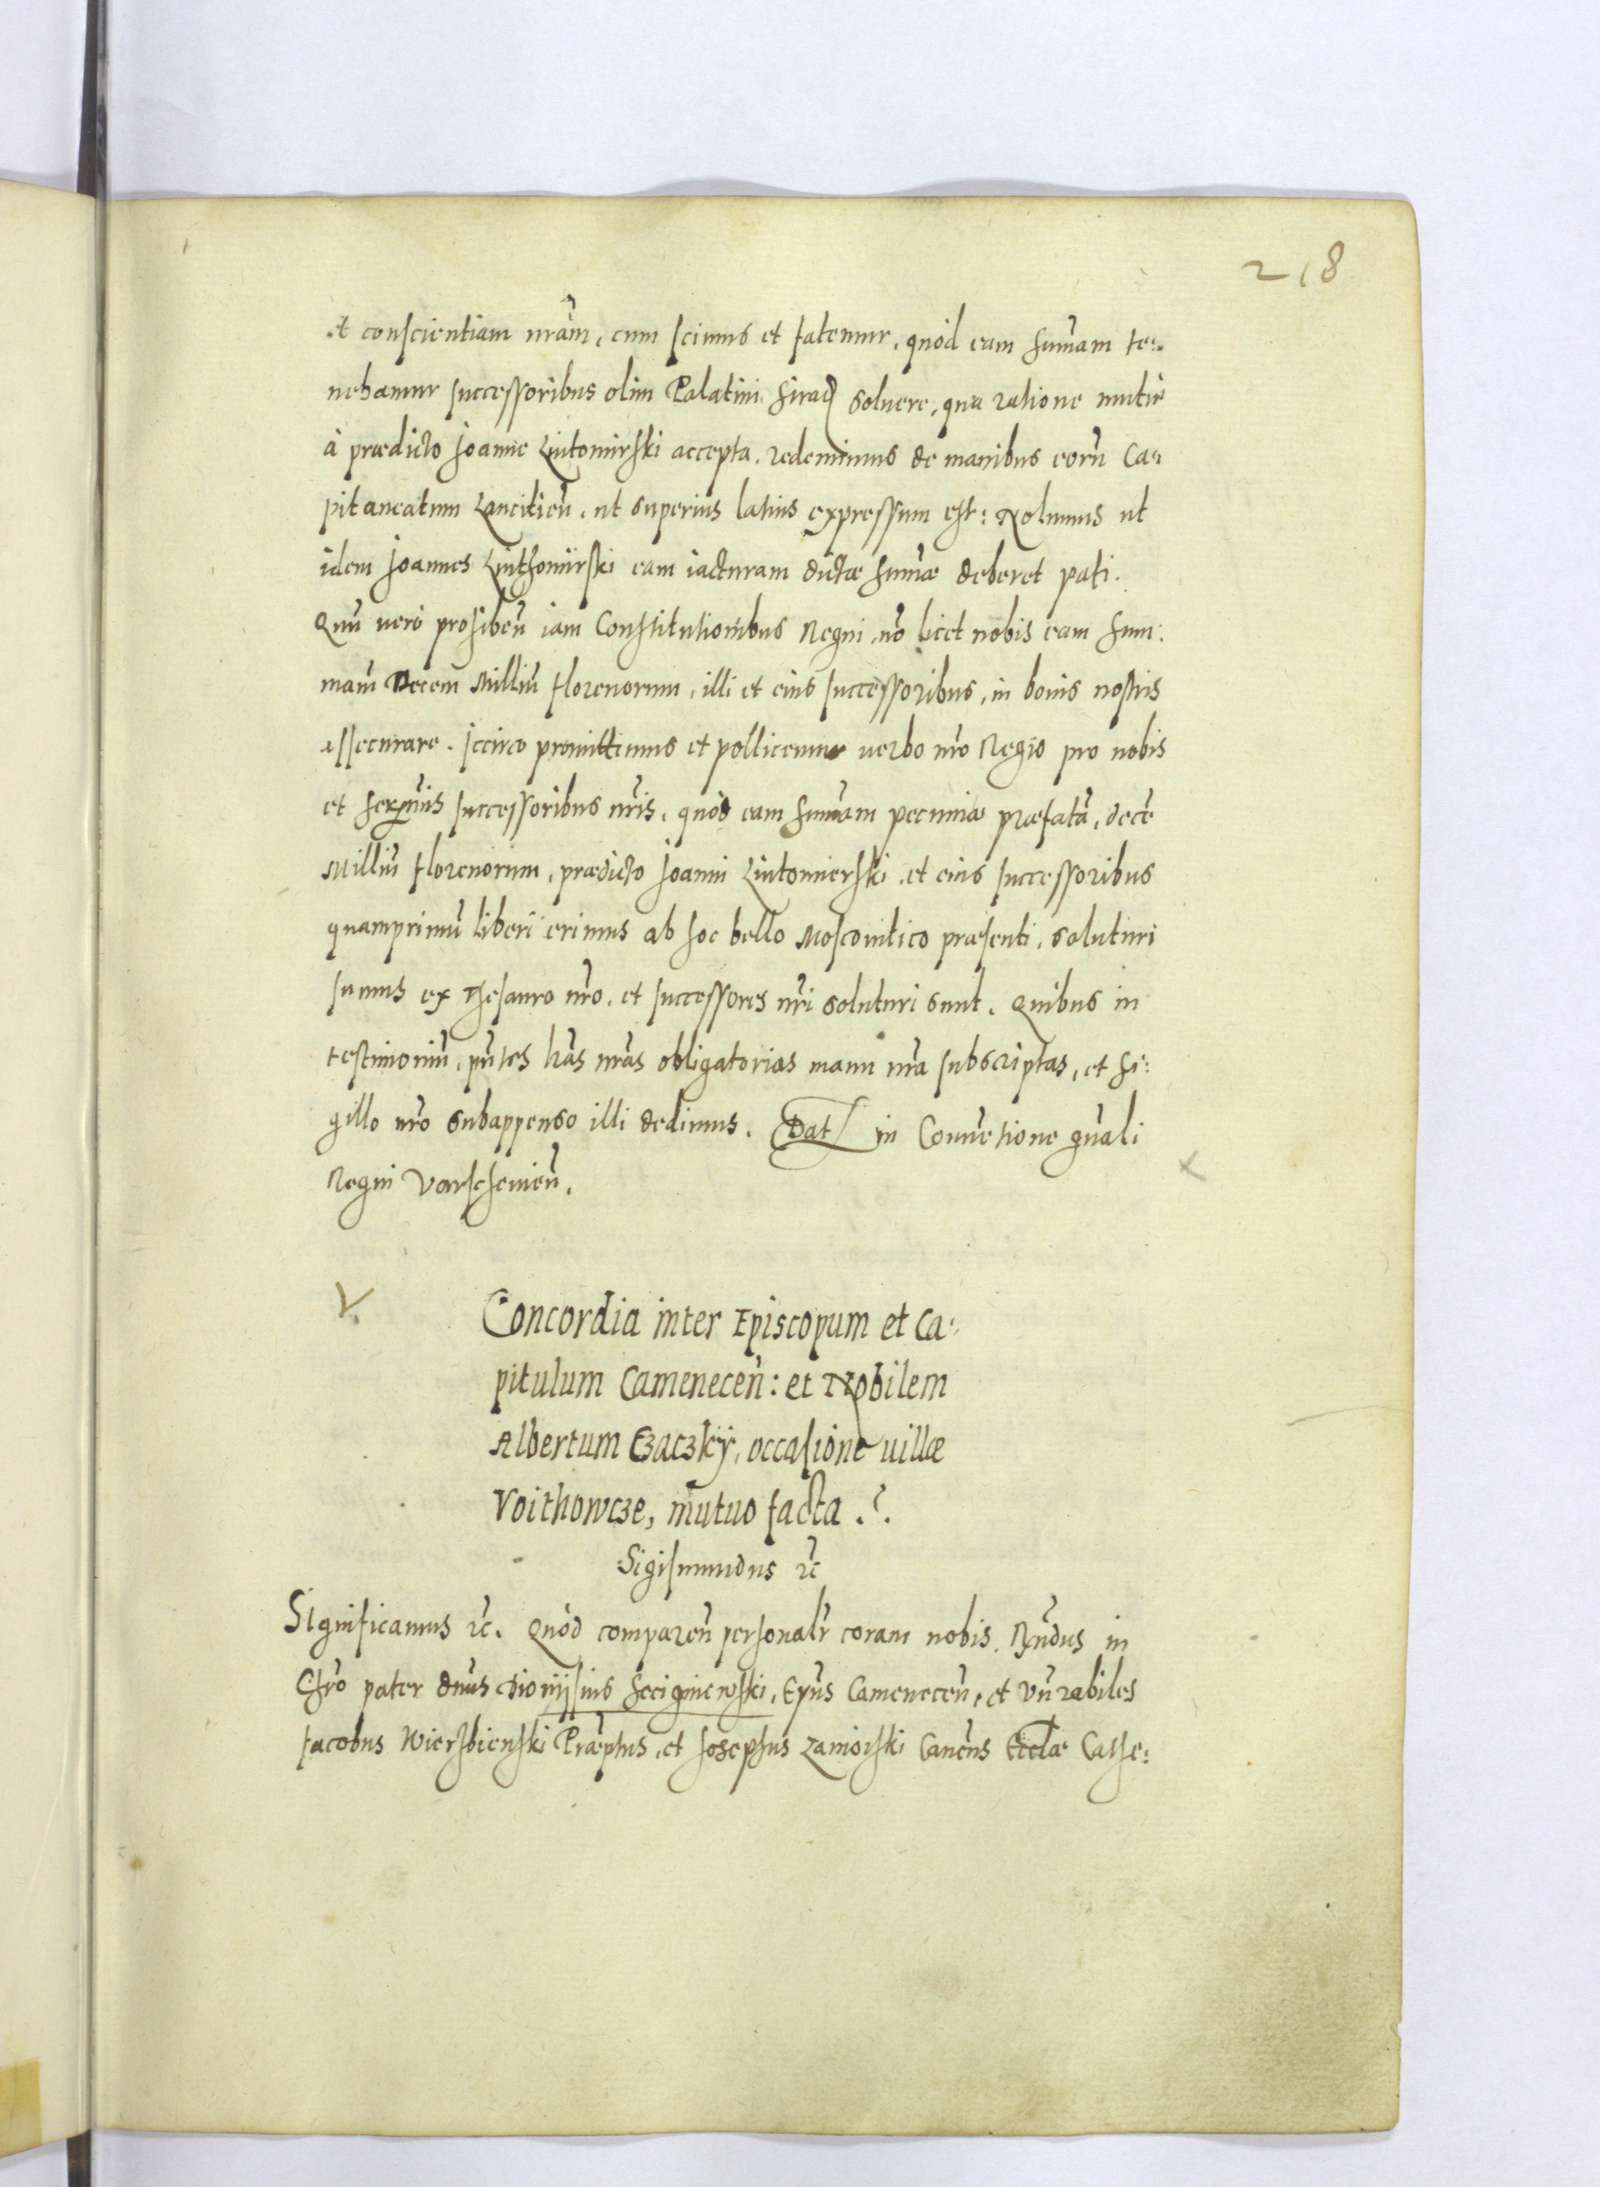 218
et conscientiam nrãm, cum scimus et fatemur, quòd eam sum̃am te:
nebamur successoribus olim Palatini Sirad soluere, qua ratione mutui
à prædicto Joanne Lutomirski accepta, redemimus de manibus eorũ Ca:
pitaneatum Lanciticeñ, ut superius latius expressum est: Nolumus ut
idem Joannes Luthomirski eam iacturam dictæ sum̃æ deberet pati.
Quũ verò prohibeñ iam Constitutionibus Regni, nõ licet nobis eam sum:
mam̃ Decem Milliũ florenorum, illi et eius successoribus, in bonis nostris
assecurare. Iccirco promittimus et pollicemur uerbo nrõ Regio pro nobis
et serẽmis successoribus nrĩs, quòd eam sum̃am pecuniæ præfatã, decẽ
Milliũ florenorum, prædicto Joanni Lutomierski, et eius successoribus
quamprimũ liberi erimus ab hoc bello Moscouitico præsenti, soluturi
sumus ex Thesauro nrõ, et successores nrĩ soluturi sunt. Quibus in
testimoniũ, pñtes lrãs nrãs obligatorias manu nrã subscriptas, et si:
gillo nrõ subappenso illi dedimus. Dat in Conuẽtione gñali
Regni Varscheuieñ.
Concordia inter Episcopum et Ca:
pitulum Cameneceñ: et Nobilem
Albertum Czaczkÿ, occasione uillæ
Voithowcze, mutuo facta.
Sigismundus rc̃
Significamus rc̃. Quòd compareñ personalr̃ coram nobis Rñdus in
Chrõ pater dñus Dionÿsius Secigniewski, Epũs Cameneceñ, et Vñrabiles
Jacobus Wierzbienski Præptus, et Josephus Zamoiski Canc̃us Eccłæ Cathe: